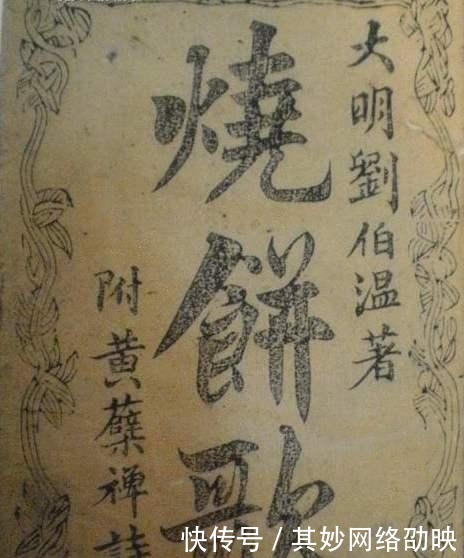 大明劉伯温著
燒餅歌
附黄蘖禅詩
快传号 / 其妙网络劭映